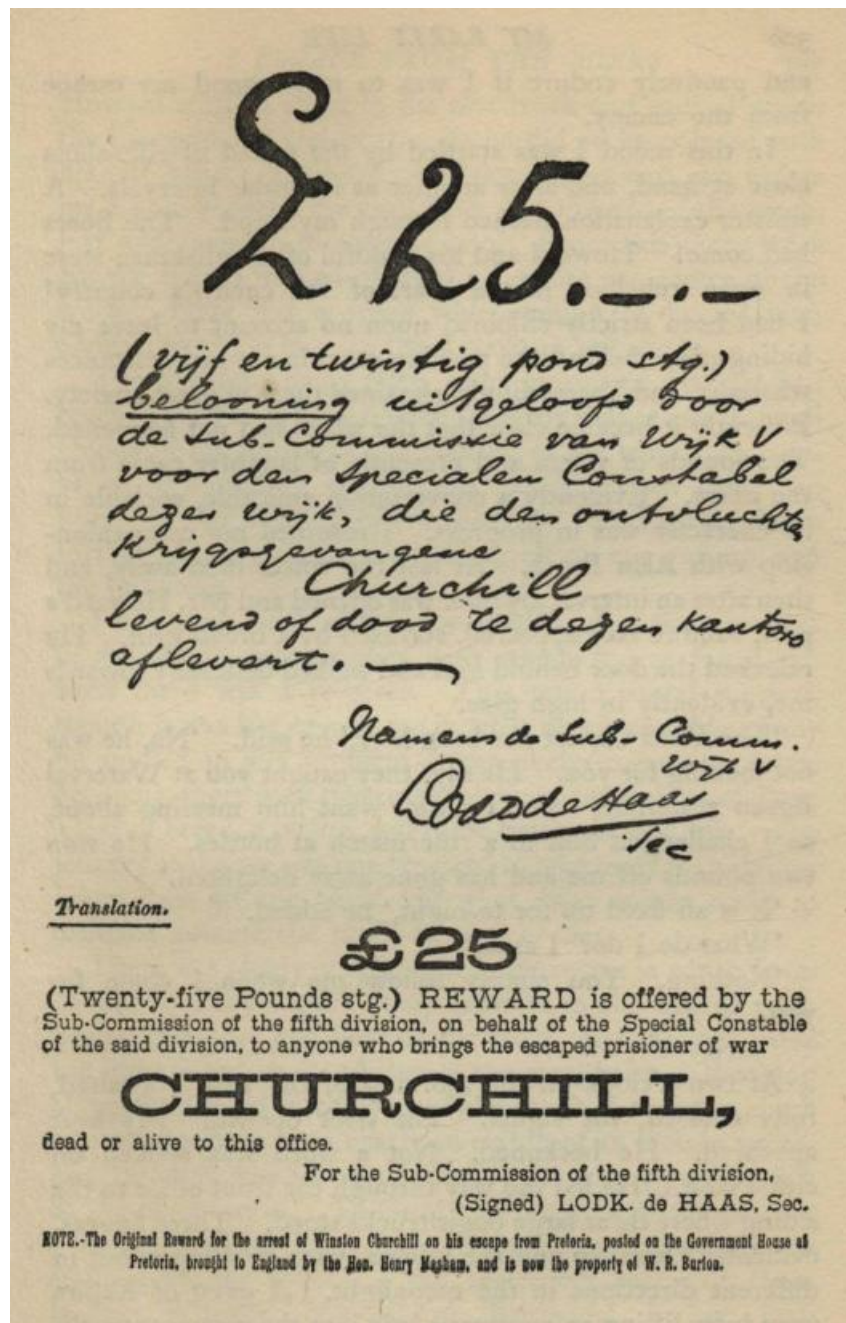 £25.—.—
(vijf en twintig pond stg.)
belooning uitgeloofd door
de Sub-Commissie van Wijk V
voor den specialen Constabel
dezer wijk, die den ontvluchten
Krijgsgevangene
Churchill
levend of dood te dezen kantore
aflevert. —
Namens de Sub-Comm.
Wijk V
Lodk de Haas
Sec
Translation.
£25
(Twenty-five Pounds stg.) REWARD is offered by the
Sub-Commission of the fifth division, on behalf of the Special Constable
of the said division, to anyone who brings the escaped prisioner of war
CHURCHILL,
dead or alive to this office.
For the Sub-Commission of the fifth division,
(Signed) LODK. de HAAS, Sec.
NOTE.-The Original Reward for the arrest of Winston Churchill on his escape from Pretoria, posted on the Government House at
Pretoria, brought to England by the Hon. Henry Masham, and is now the property of W. R. Burton.